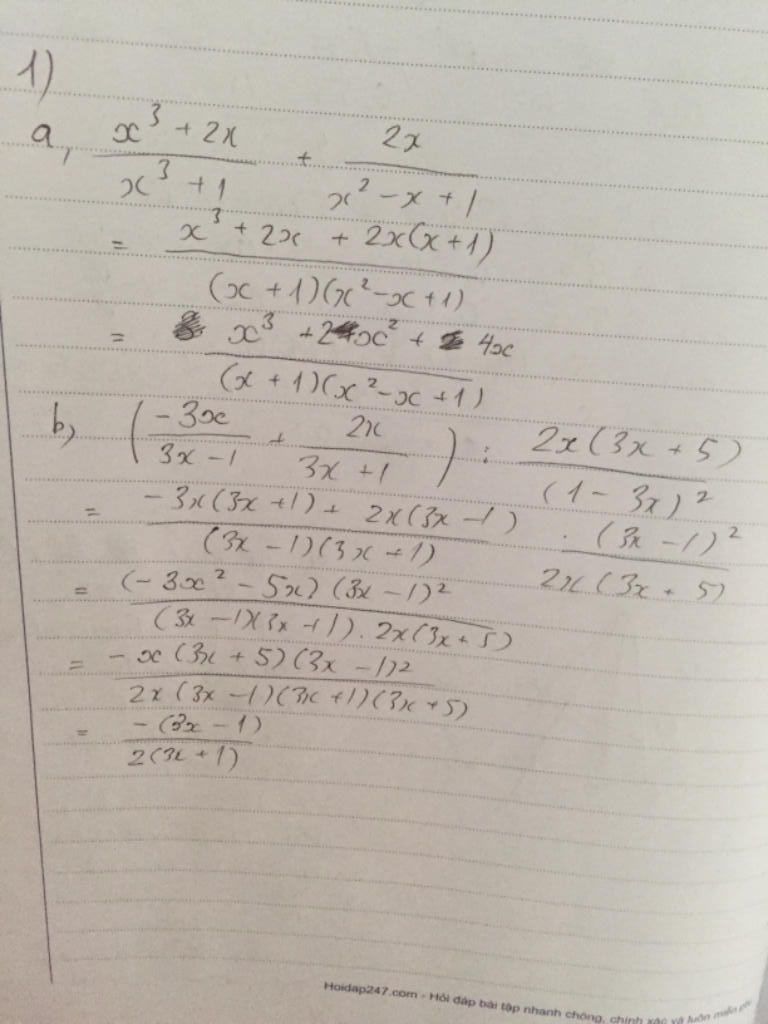 1)
a, \frac{x^3 + 2x}{x^3 + 1} + \frac{2x}{x^2 - x + 1}
= \frac{x^3 + 2x + 2x(x + 1)}{(x + 1)(x^2 - x + 1)}
= \frac{x^3 + 2x^2 + 4x}{(x + 1)(x^2 - x + 1)}
b, \left( \frac{-3x}{3x - 1} + \frac{2x}{3x + 1} \right) : \frac{2x(3x + 5)}{(1 - 3x)^2}
= \frac{-3x(3x + 1) + 2x(3x - 1)}{(3x - 1)(3x + 1)} . \frac{(3x - 1)^2}{2x(3x + 5)}
= \frac{(-3x^2 - 5x)(3x - 1)^2}{(3x - 1)(3x + 1) . 2x(3x + 5)}
= \frac{-x(3x + 5)(3x - 1)^2}{2x(3x - 1)(3x + 1)(3x + 5)}
= \frac{-(3x - 1)}{2(3x + 1)}
Hoidap247.com - Hỏi đáp bài tập nhanh chóng, chính xác và luôn miễn phí